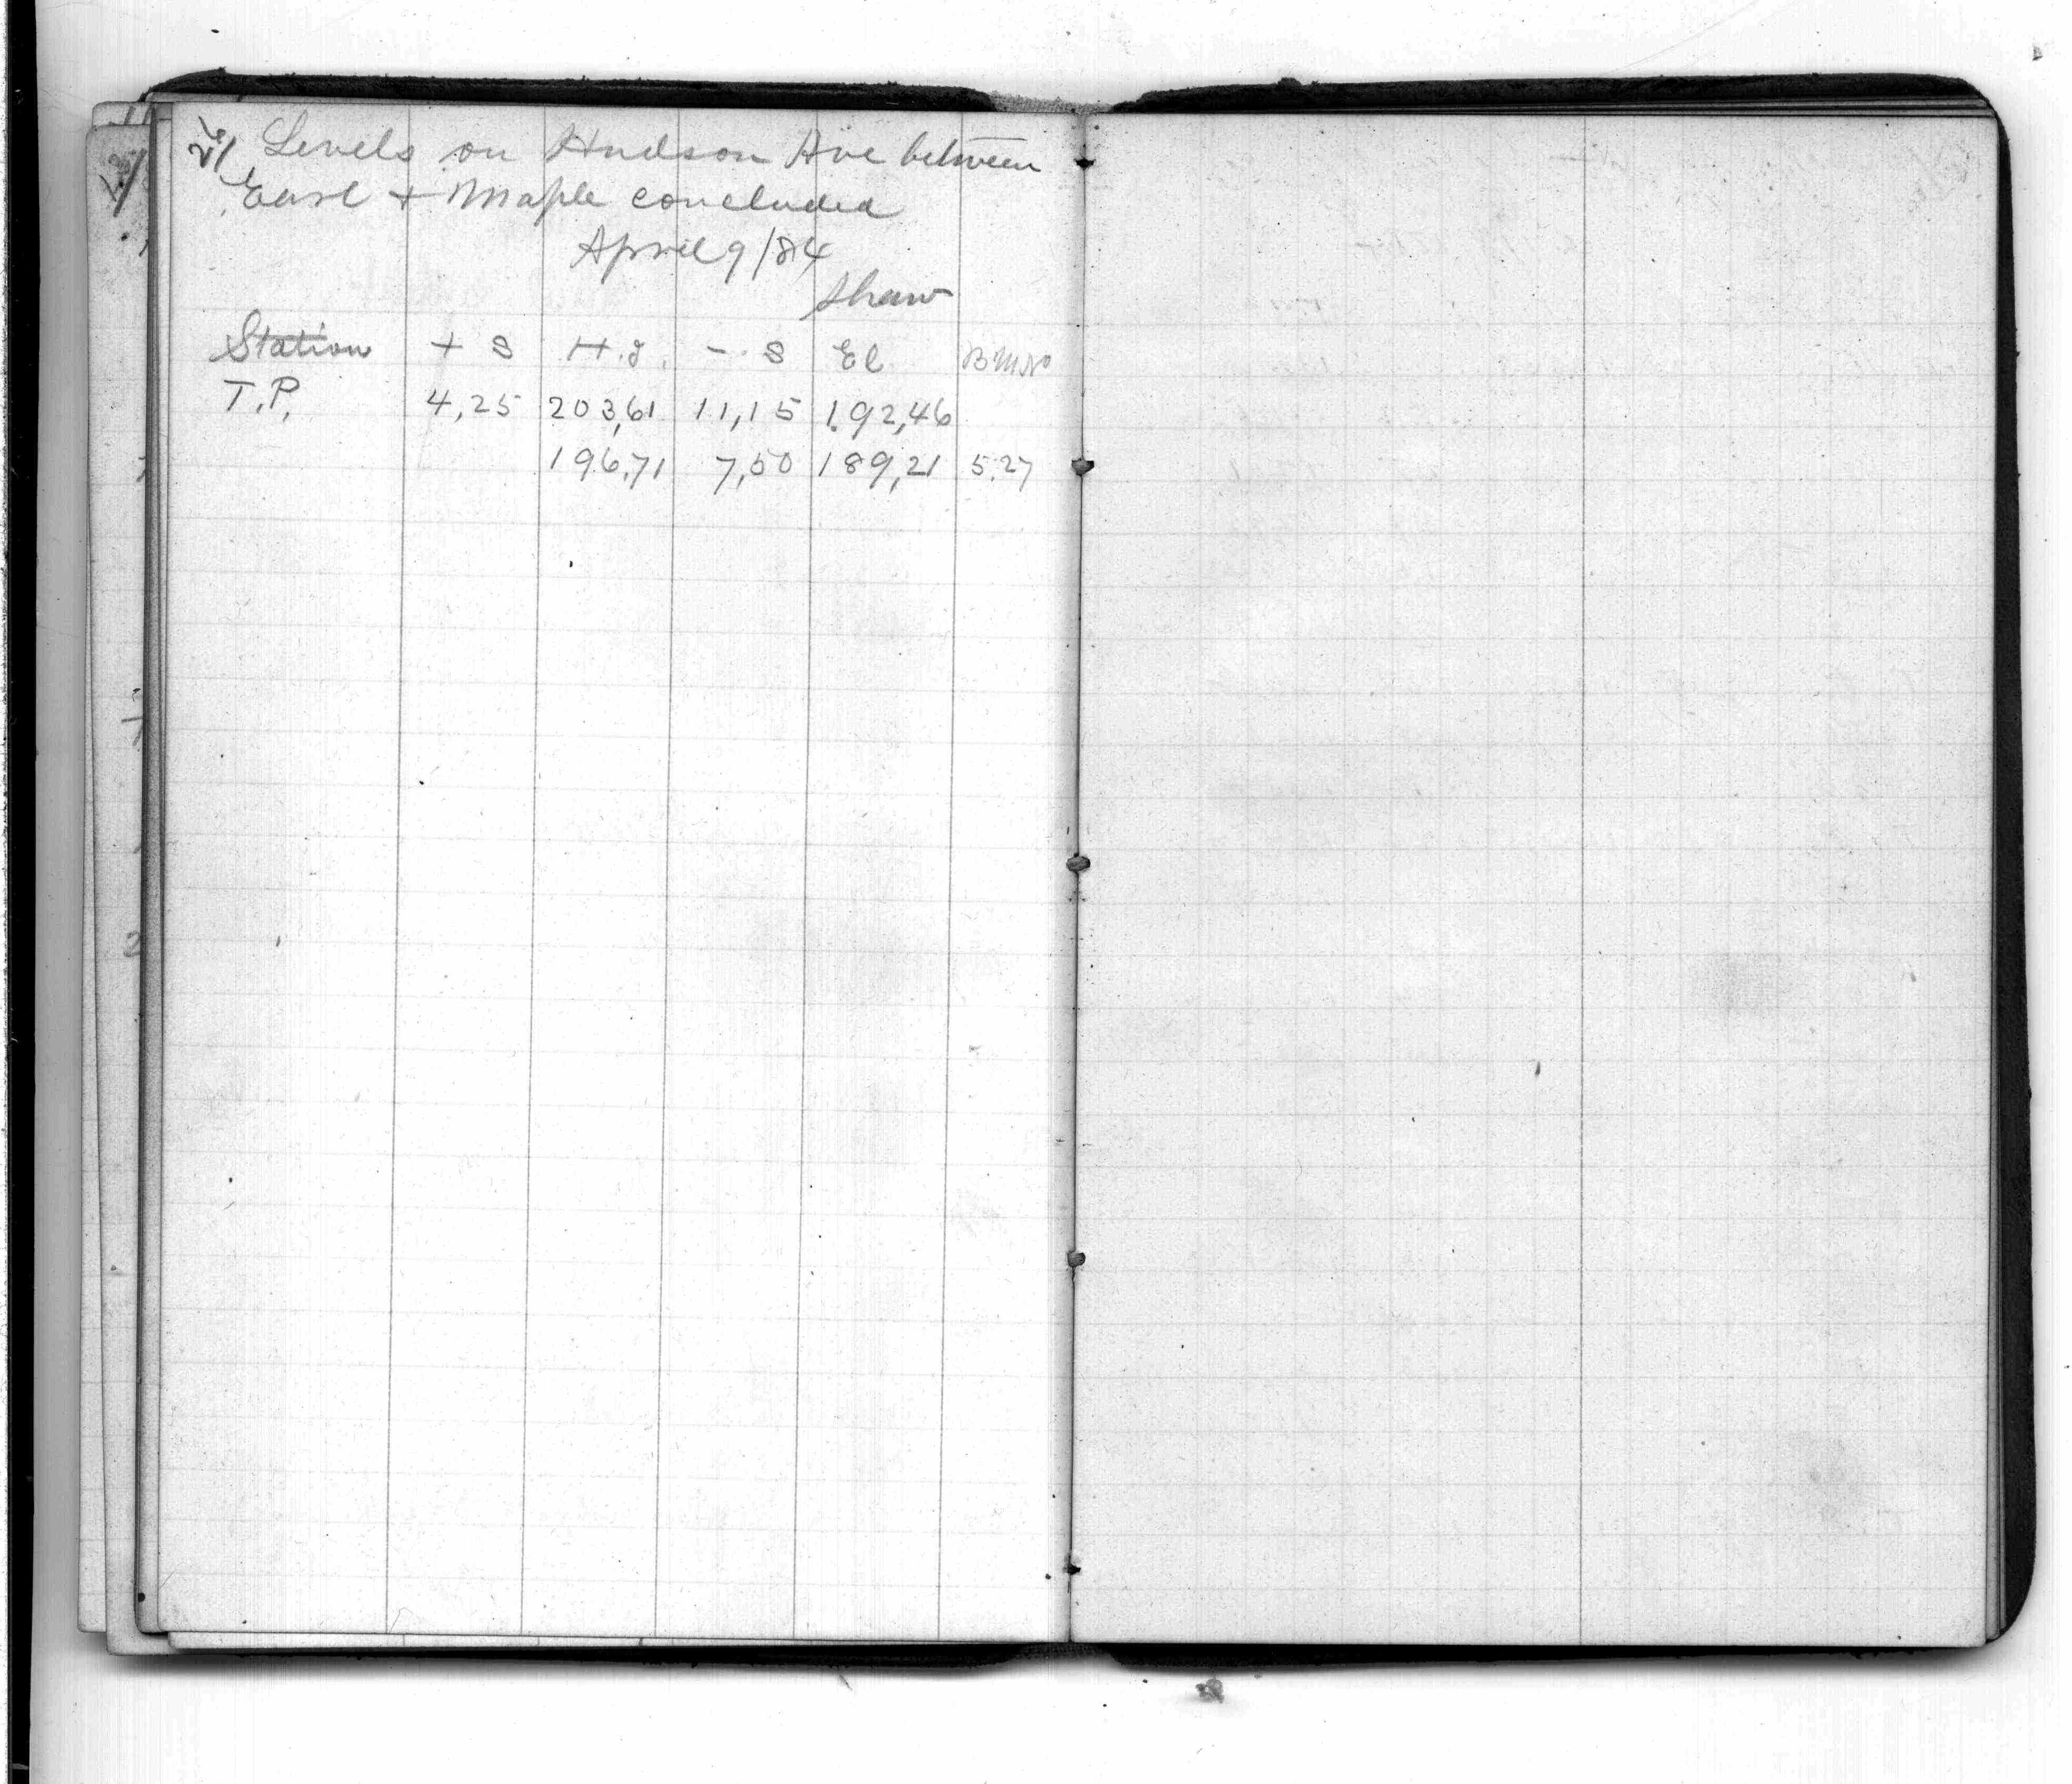 Levels on Hudson Ave between
East + Maple concluded
April 9/84
Shaw
Station + S H.I. - S El B.M.No
T.P. 4,25 203,61 11,15 192,46
196,71 7,50 189,21 527